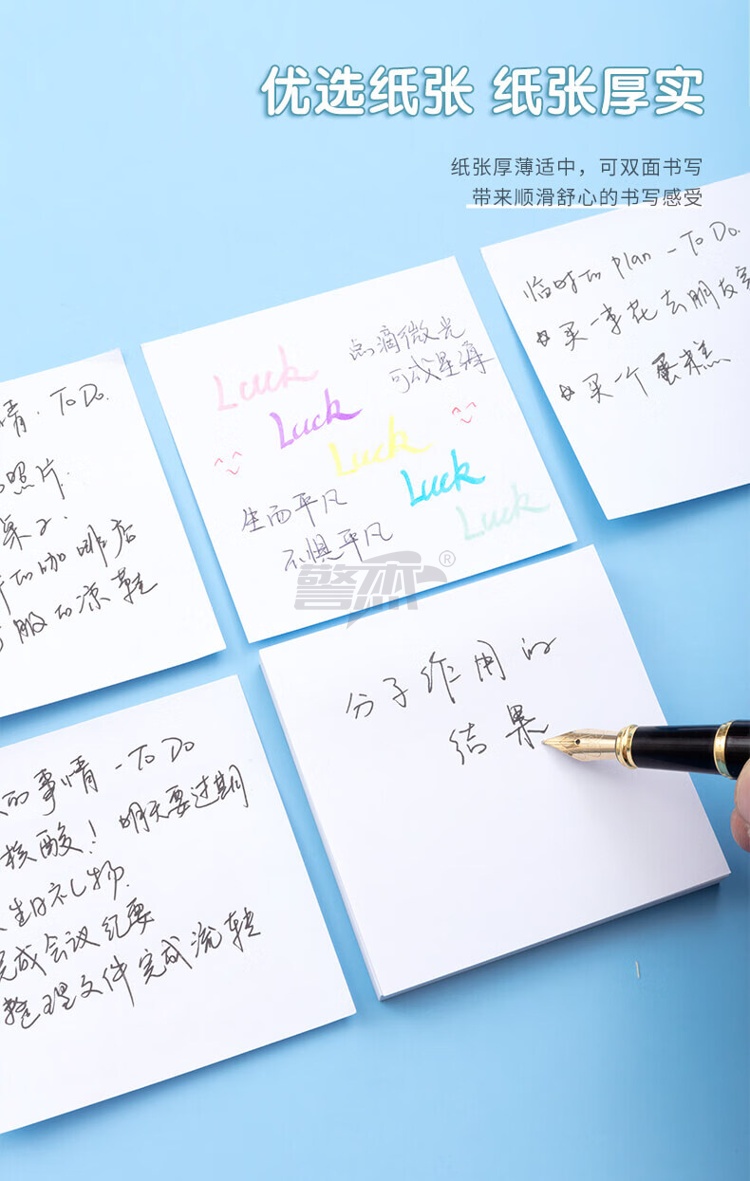 优选纸张 纸张厚实
纸张厚薄适中，可双面书写
带来顺滑舒心的书写感受
临时的 plan - To Do.
买一束花去朋友家
买一个蛋糕
点滴微光
可成星海
Luck
Luck
Luck
Luck
Luck
生而平凡
不惧平凡
情. To Do.
照片.
桌子.
的咖啡店
服的凉鞋
警杰®
分子作用的
结果
的事情 - To Do
核酸！明天要过期
生日礼物.
完成会议纪要
整理文件完成流转